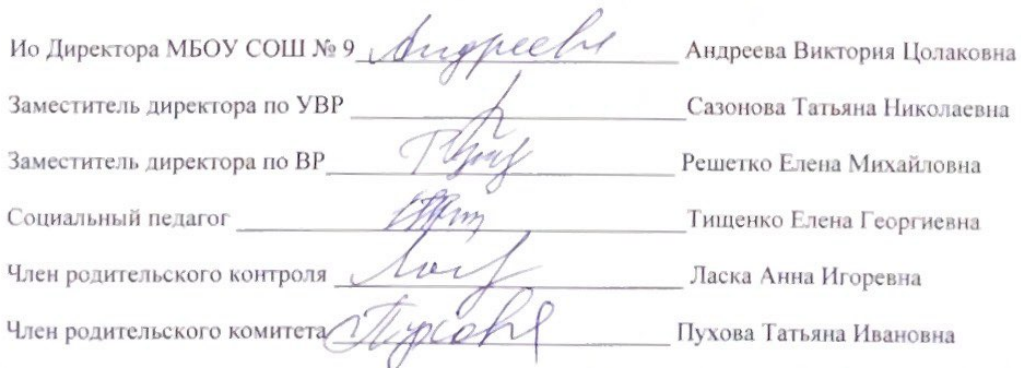 Ио Директора МБОУ СОШ № 9 Андреева Андреева Виктория Цолаковна
Заместитель директора по УВР Сазонова Татьяна Николаевна
Заместитель директора по ВР Решетко Елена Михайловна
Социальный педагог Тищенко Елена Георгиевна
Член родительского контроля Ласка Анна Игоревна
Член родительского комитета Пухова Пухова Татьяна Ивановна